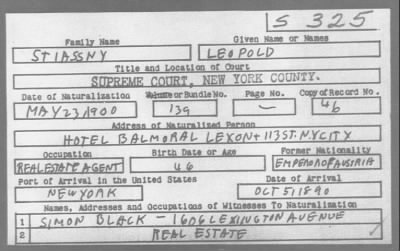 S 325
Family Name Given Name or Names
STIASSNY LEOPOLD
Title and Location of Court
SUPREME COURT, NEW YORK COUNTY.
Date of Naturalization Volume or Bundle No. Page No. Copy of Record No.
MAY 23, 1900 139 — 46
Address of Naturalized Person
HOTEL BALMORAL LEXON + 113 ST. NYCITY
Occupation Birth Date or Age Former Nationality
REAL ESTATE AGENT 46 EMPEROR OF AUSTRIA
Port of Arrival in the United States Date of Arrival
NEW YORK OCT 5 1890
Names, Addresses and Occupations of Witnesses To Naturalization
1 SIMON BLACK - 1606 LEXINGTON AVENUE
2 REAL ESTATE